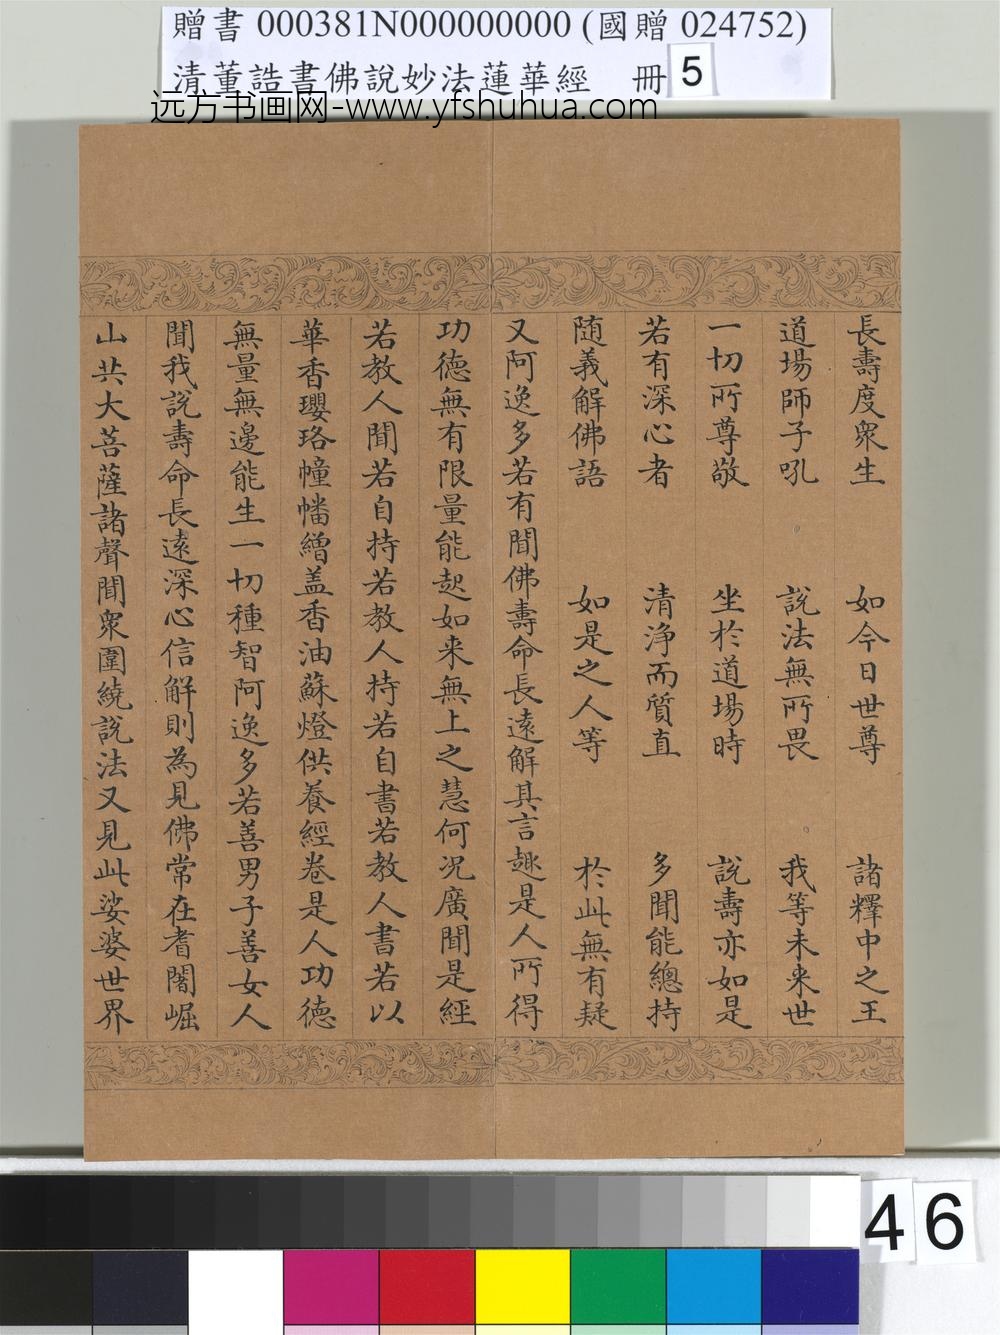 贈書 000381N000000000 (國贈 024752)
清董誥書佛說妙法蓮華經 冊 5
远方书画网-www.yfshuhua.com
長壽度衆生 如今日世尊 諸釋中之王
道場師子吼 說法無所畏 我等未来世
一切所尊敬 坐於道場時 說壽亦如是
若有深心者 清淨而質直 多聞能總持
随義解佛語 如是之人等 於此無有疑
又阿逸多若有聞佛壽命長遠解其言趣是人所得
功德無有限量能起如来無上之慧何况廣聞是經
若教人聞若自持若教人持若自書若教人書若以
華香瓔珞幢幡繒盖香油蘇燈供養經卷是人功德
無量無邊能生一切種智阿逸多若善男子善女人
聞我說壽命長遠深心信解則為見佛常在耆闍崛
山共大菩薩諸聲聞衆圍繞說法又見此娑婆世界
46